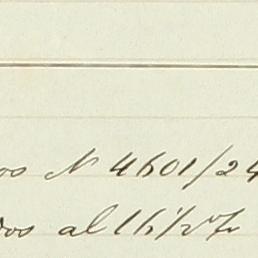 os N 4601/24
dos al 16½ %